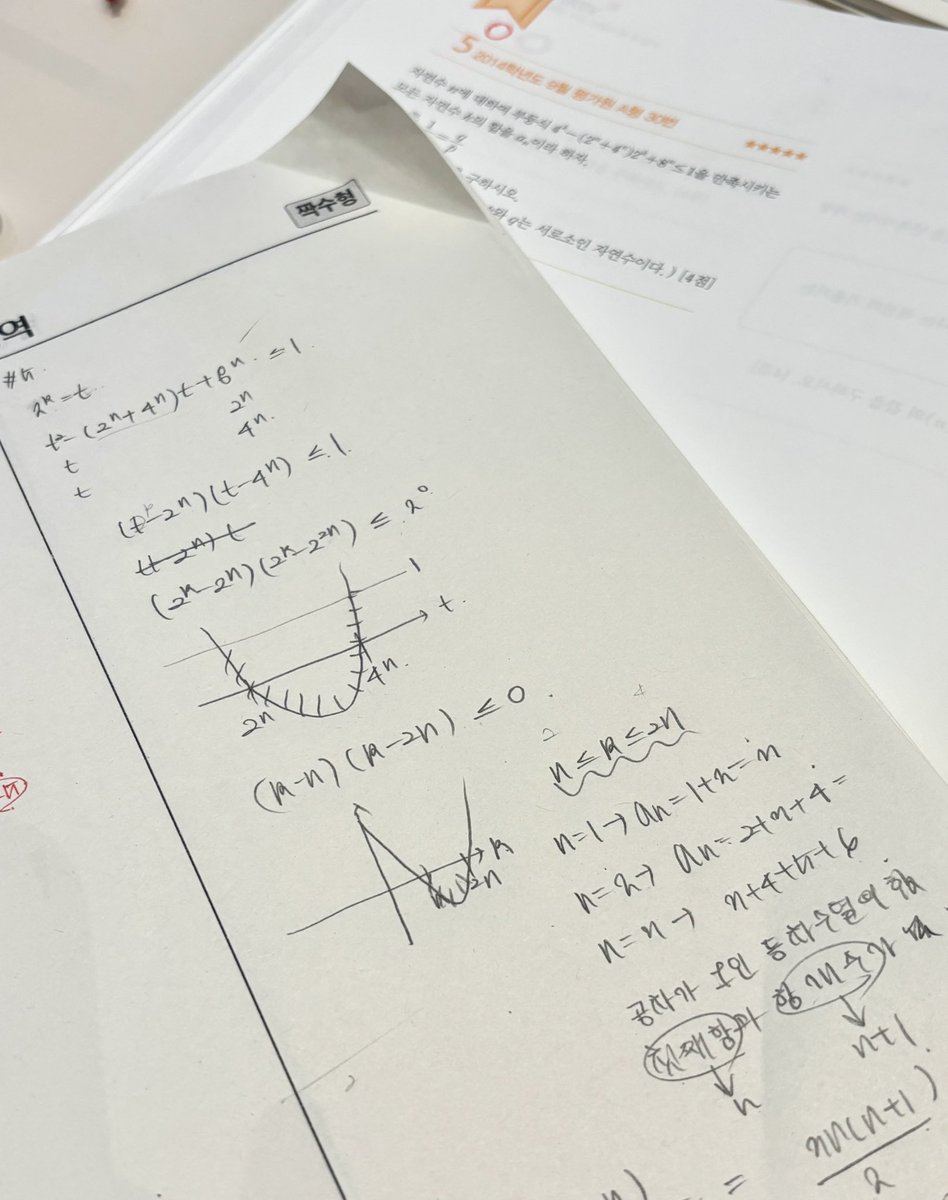 5 2018학년도 9월 평가원 나형 30번
★★★★★
자연수 n에 대하여 부등식 4ᵏ-(2ⁿ+4ⁿ)2ᵏ+8ⁿ≤1을 만족시키는
모든 자연수 k의 합을 aₙ이라 하자.
구하시오.
q는 서로소인 자연수이다.) [4점]
짝수형
역
2ᵏ=t
t²-(2ⁿ+4ⁿ)t+8ⁿ ≤1
t 2ⁿ
t 4ⁿ
(t-2ⁿ)(t-4ⁿ) ≤1
(t-2ⁿ) t
(2ᵏ-2ⁿ)(2ᵏ-2²ⁿ) ≤ 2⁰
1
t
2n 4n
(k-n)(k-2n) ≤0
n≤k≤2n
k
2n
n=1→ aₙ=1+2=3
n=2→ aₙ=2+3+4=
n=3→ 3+4+5+6
공차가 1인 등차수열의 합
첫째항 항 개수가
n n+1
= 3n(n+1)
2